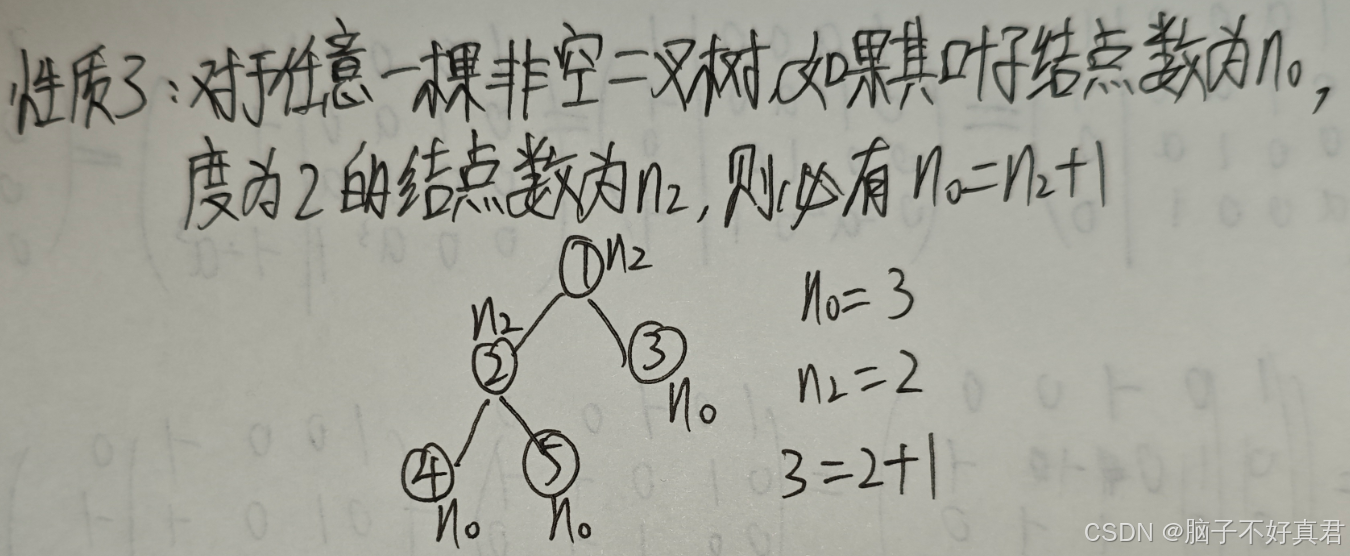 性质3:对于任意一棵非空二叉树,如果其叶子结点数为n₀,
度为2的结点数为n₂,则必有 n₀=n₂+1
① n₂
n₂
② ③
n₀
④ ⑤
n₀ n₀
n₀=3
n₂=2
3=2+1
CSDN @脑子不好真君